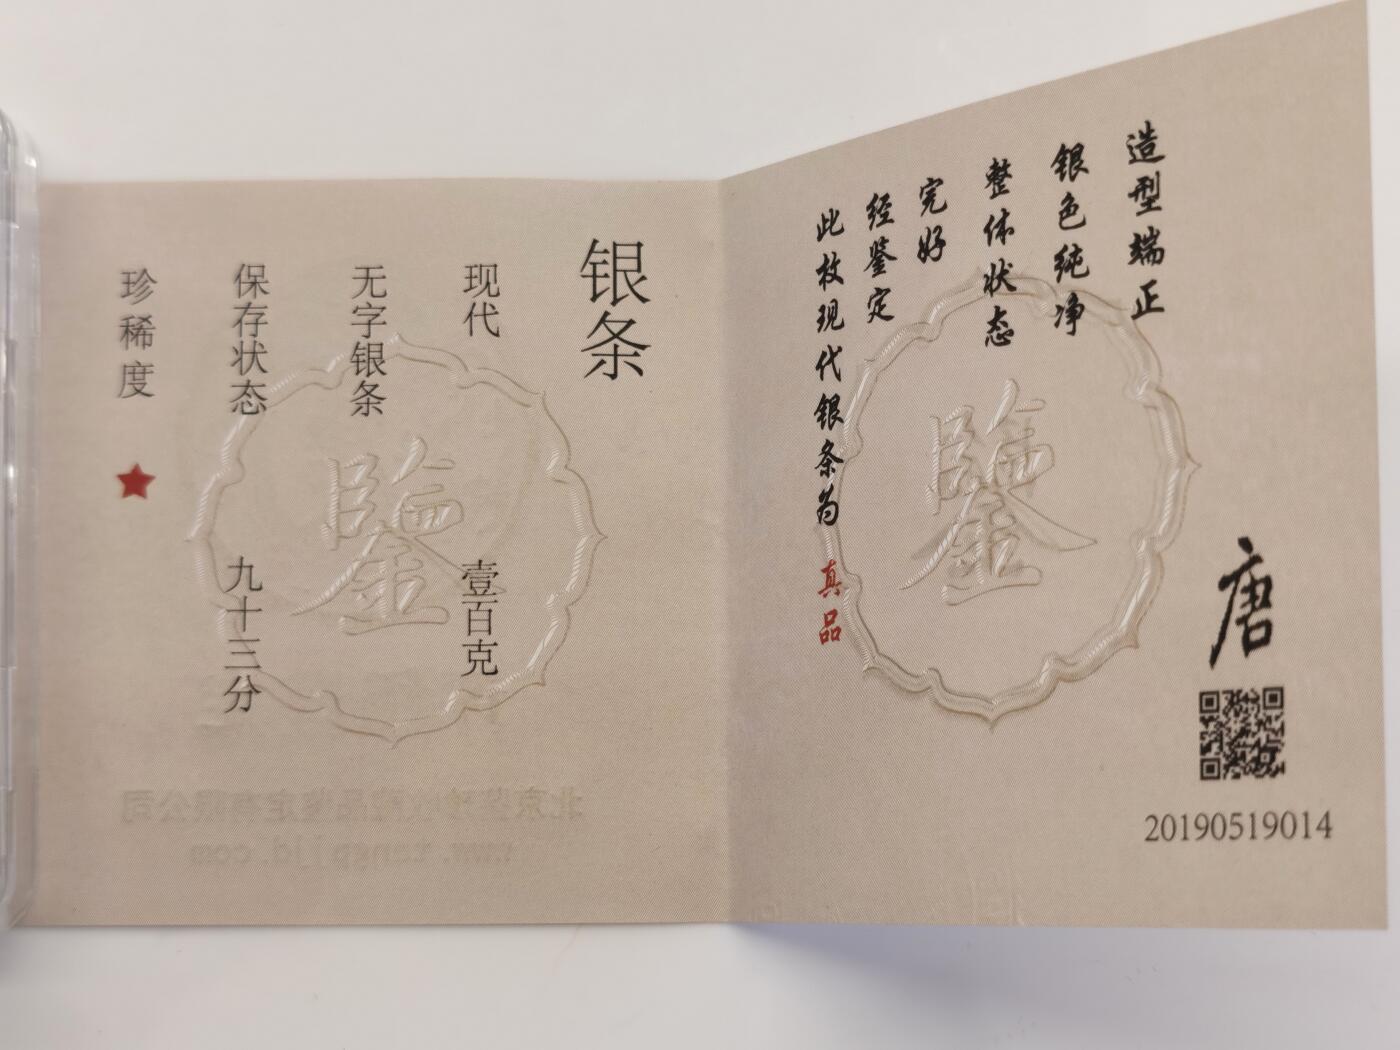 造型端正
银色纯净
整体状态
完好
经鉴定
此枚现代银条为 真品
鑒
唐
20190519014
银条
现代 壹百克
无字银条
保存状态 九十三分
珍稀度
鑒